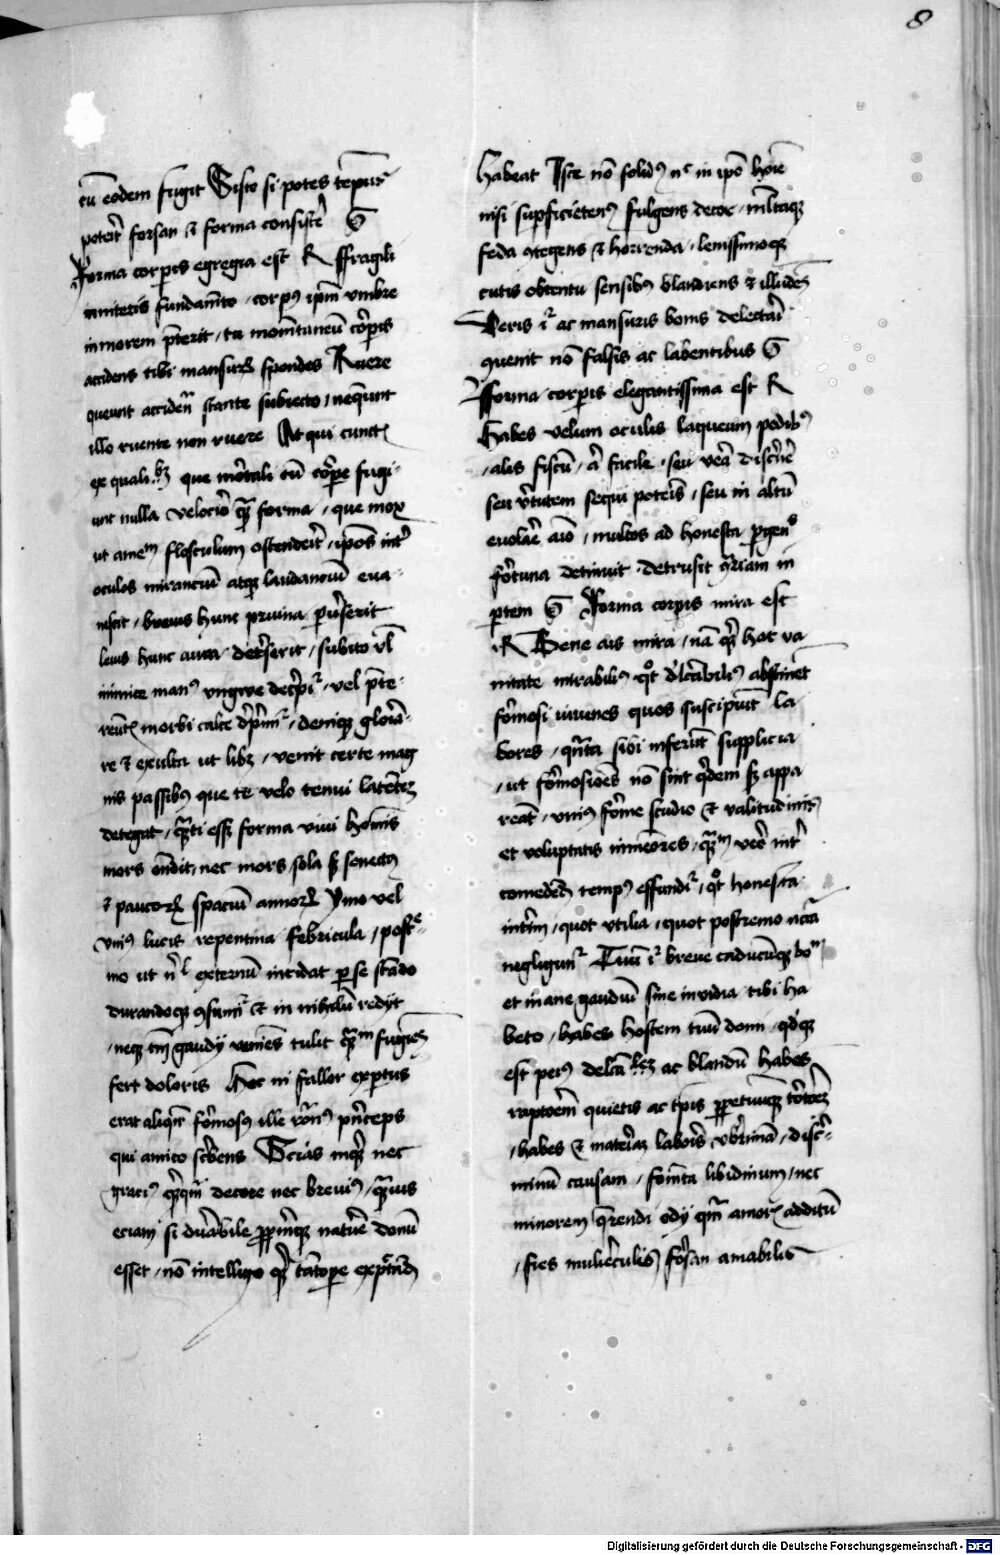 8
cū eodem fugit Sisto si potes tempus
poterit forsan et forma consistere G
Forma corporis egregia est R Fragili
inniteris fundamēto corpus ipm umbre
in morem pterit tu momētaneū corporis
accidens tibi mansurū spondes Ruere
queunt accidēn stante subiecto nequeunt
illo ruente non ruere At qui cunctis
ex qualibus que mortali cū corpe fugi
unt nulla velocior quam forma que mox
ut amenū flosculum ostenderit ipsos inter
oculos mirantium atque laudantium eua
nescit breuis hunc pruina perusserit
leuis hunc aura detserit subito vel
inimice manus ungue decerpitur vel prete
reuntis morbi calce deprimitur deniqz gloria
re et exulta ut libet venit certe mag
nis passibus que te velo tenui latentem
detegat quanti esset forma viui hominis
mors ondit nec mors sola sed senectus
et paucorum spatium annorum ymo vel
unius lucis repentina febricula postre
mo ut nil externum incidat per se stando
durandoqz consumitur et in nihilū redijt
neqz tm gaudij veniens tulit qm fugiens
fert doloris Hec ni fallor exptus
erat aliqn formosus ille romanus princeps
qui amico scribens Scias inquit nec
gracius quicquam decore nec breuius quamuis
eciam si durabile ppriumqz nature donū
esset nō intelligo quid tantope exptandū
Habeat Iste nō solidus nec in ipo hoīe
nisi supficietenus fulgens decor multaqz
feda contegens et horrenda leuissimoqz
cutis obtentu sensibus blandiens et illudens
Veris igitur ac mansuris bonis delectari
conuenit nō falsis ac labentibus G
Forma corporis elegantissima est R
Habes velum oculis laqueum pedibus
alis fiscū a facile seu vera discernere
seu virtutem sequi poteris seu in altū
euolare aīo multos ad honesta pergentes
fortuna detinuit detrusit gloriam in
ptem G Forma corporis mira est
R Bene ais mira nā quid hoc va
nitate mirabilius quot delectabilibus abstinent
formosi iuuenes quos suscipiūt la
bores quanta sibi inferunt supplicia
ut formosiores nō sint quidem sed appa
reant unius forme studio et valitudinis
et voluptatis inmemores quantum vero inter
comedendum tempus effunditur quot honesta
interim quot utilia quot postremo necessaria
negliguntur Tuum igitur breue caducumqz bonum
et inane gaudium sine inuidia tibi ha
beto habes hostem tuum domi quodqz
est peius delectabilem ac blandum habes
raptorem quietis ac tpis perpetuumqz tortorem
habes et materiam laboris uberrimam discri
minum causam fomenta libidinum nec
minorem querendi odij quam amoris additum
fies mulierculis forsan amabilis
Digitalisierung gefördert durch die Deutsche Forschungsgemeinschaft - DFG